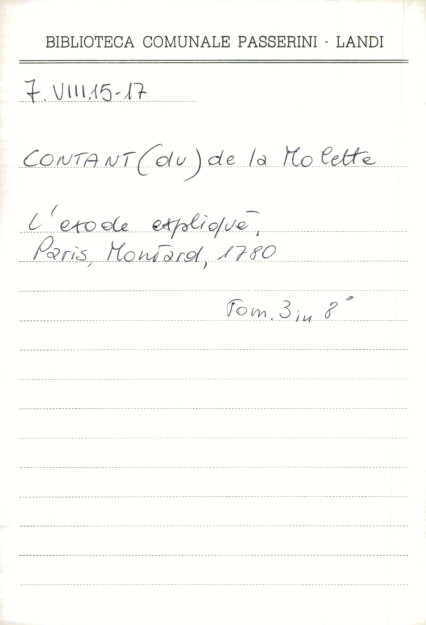 BIBLIOTECA COMUNALE PASSERINI - LANDI
7.VIII.15-17
CONTANT (du) de la Molette
L'exode expliqué,
Paris, Moutard, 1780
Tom. 3 in 8°